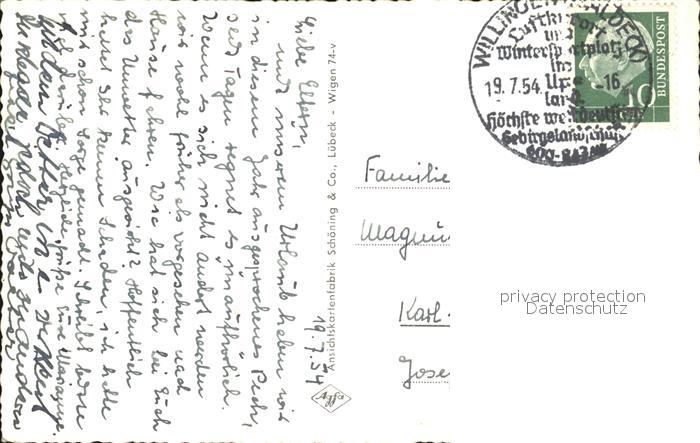 19.7.54
Liebe Eltern,
mit unserem Urlaub haben wir
in diesem Jahr ausgesprochenes Pech,
seit Tagen regnet es unaufhörlich.
Wenn es sich nicht ändert werden
wir wohl früher als vorgesehen nach
Hause fahren. Wie hat sich bei Euch
das Unwetter ausgewirkt? Hoffentlich
hattet Ihr keinen Schaden, ich hatte
mir schon Sorge gemacht. Schreibt bitte
Herzliche Grüße Eure Marianne
Ansichtskartenfabrik Schöning & Co., Lübeck - Wigen 74-v
Agfa
WILLINGEN WALDECK
Luftkurort
und
Wintersportplatz
im
19.7.54. Upl -16
land
Höchste westdeutsche
Gebirgslandschaft
600-843 M
BUNDESPOST
10
Familie
Magnu
Karl-
Jose
privacy protection
Datenschutz